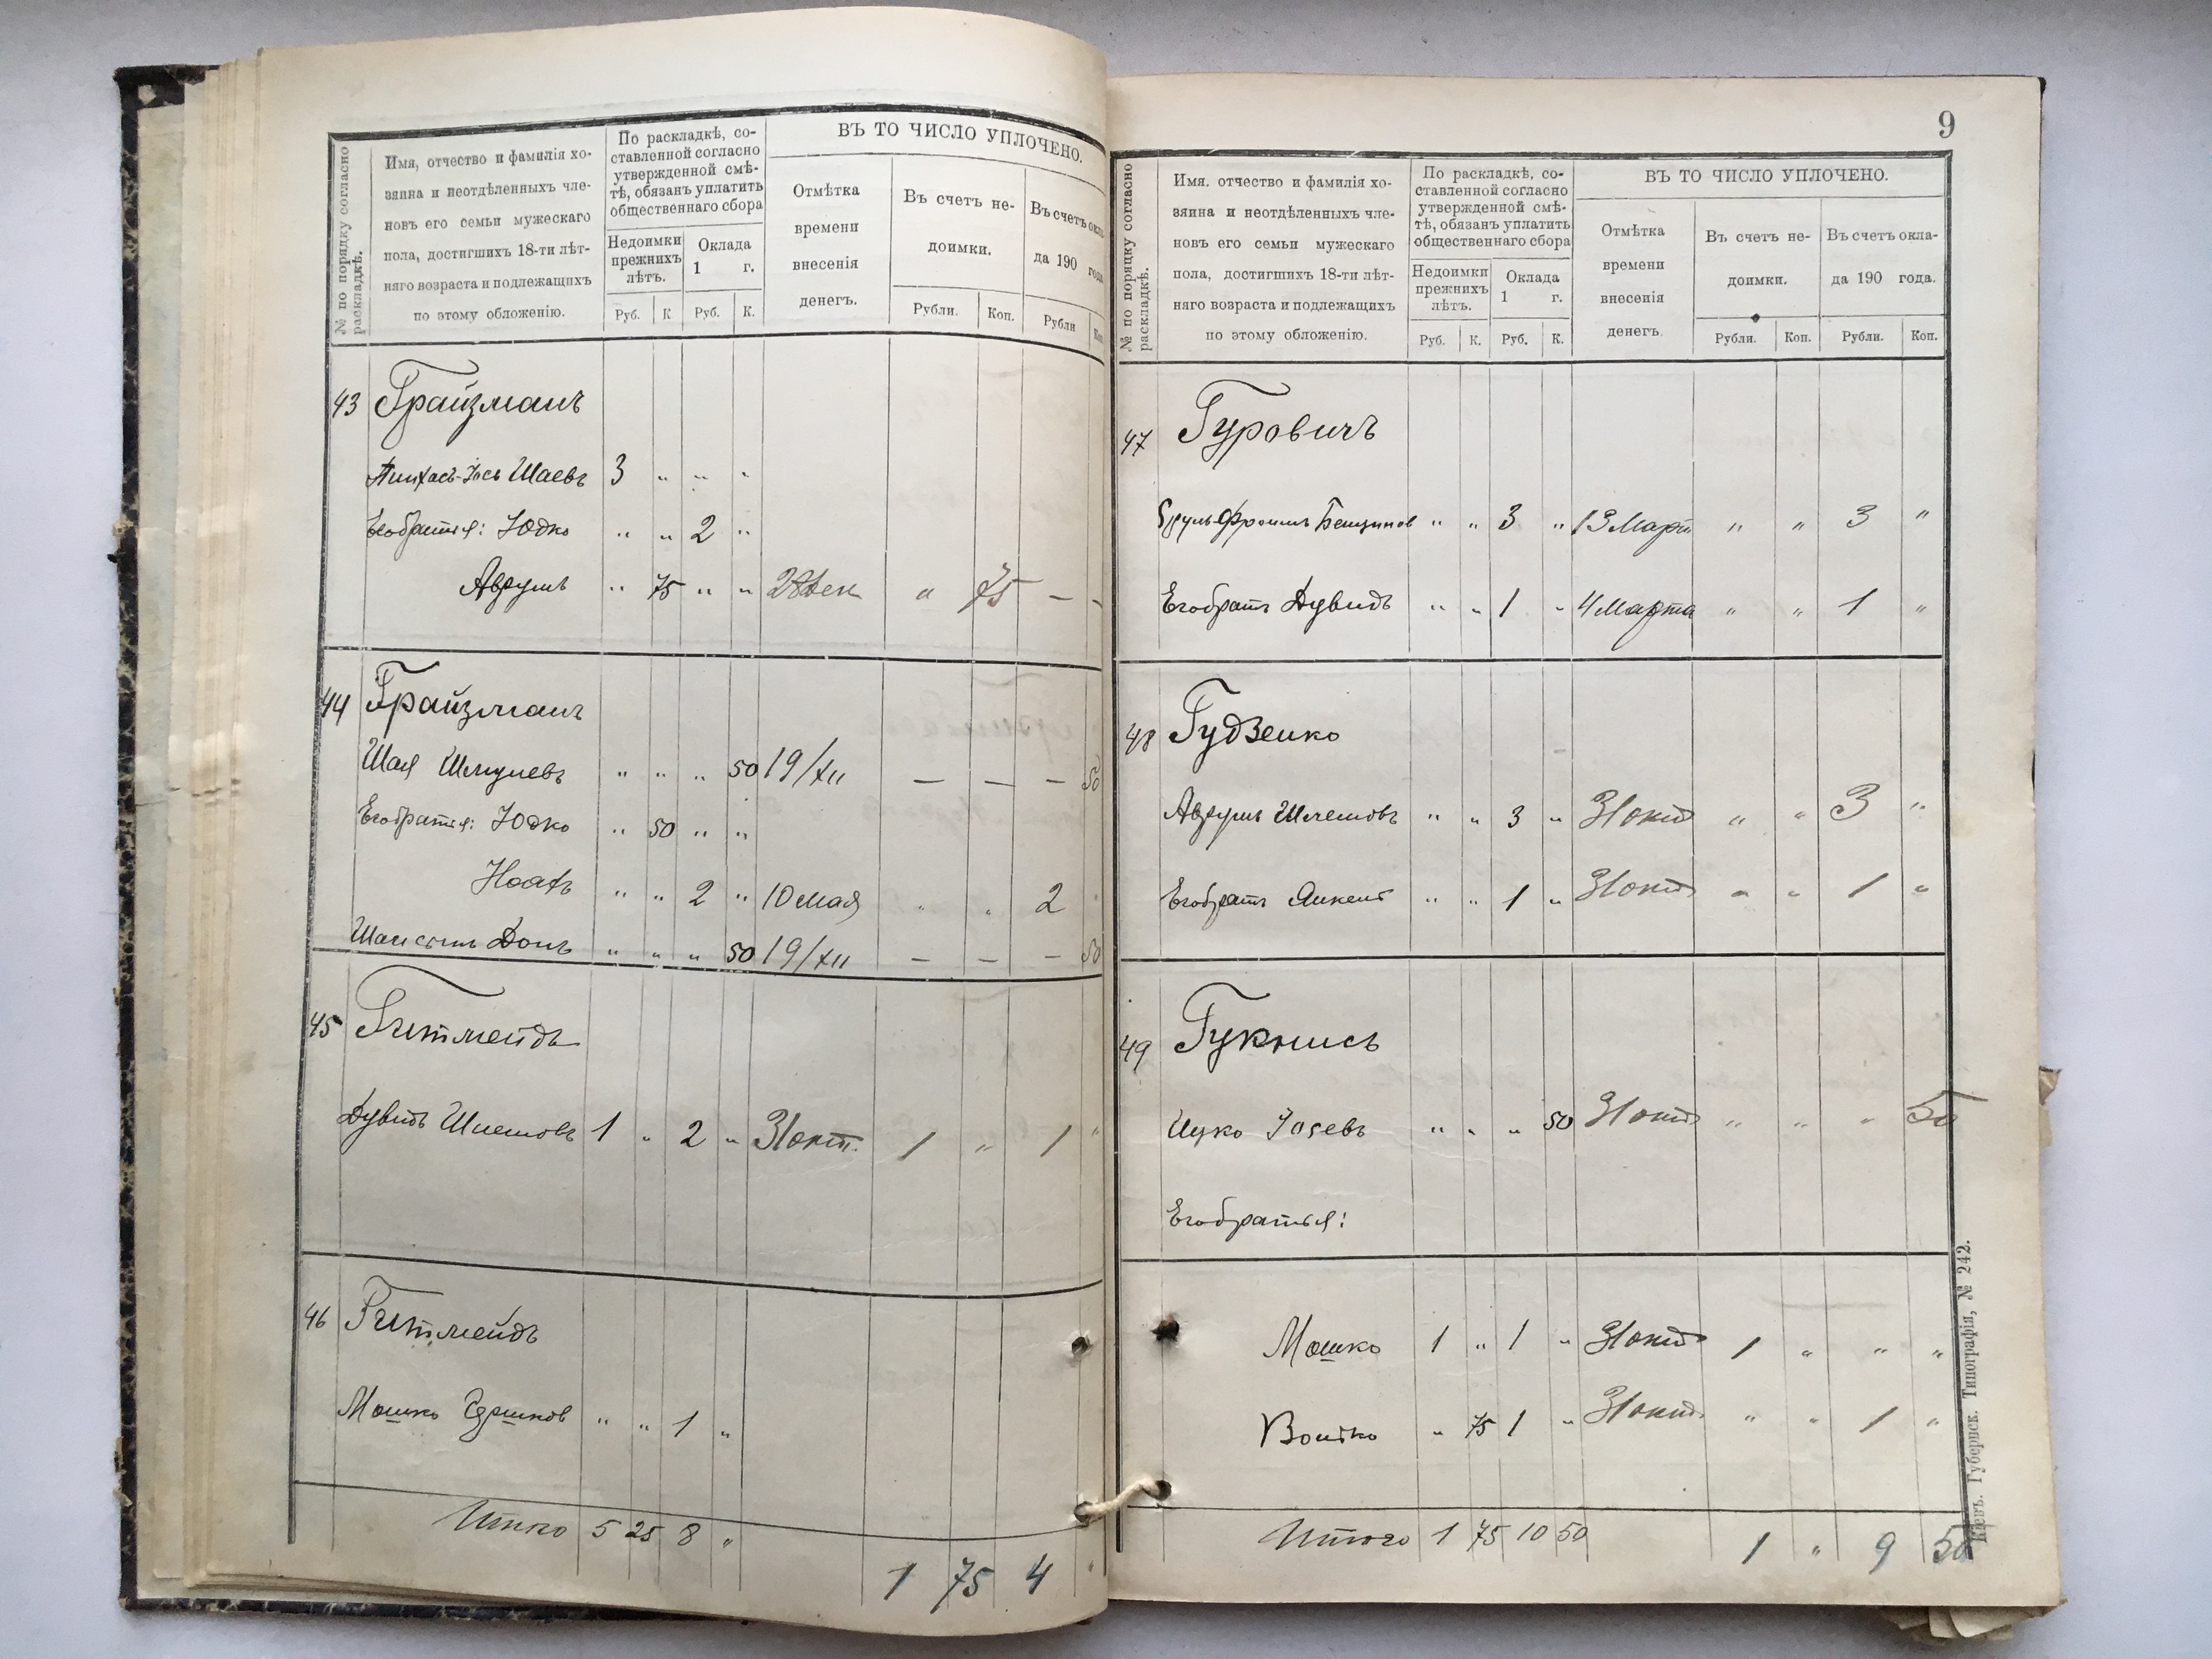 № по порядку согласно раскладкѣ.
Имя, отчество и фамилія хо-
зяина и неотдѣленныхъ чле-
новъ его семьи мужескаго
пола, достигшихъ 18-ти лѣт-
няго возраста и подлежащихъ
по этому обложенію.
По раскладкѣ, со-
ставленной согласно
утвержденной смѣ-
тѣ, обязанъ уплатить
общественнаго сбора
Недоимки прежнихъ лѣтъ.
Оклада 1 г.
Руб. К Руб. К.
ВЪ ТО ЧИСЛО УПЛОЧЕНО.
Отмѣтка
времени
внесенія
денегъ.
Въ счетъ не-
доимки.
Рубли. Коп.
Въ счетъ окла-
да 190 года
Рубли Коп
43 Грайзманъ
Пинхасъ-Іось Шаевъ 3 " " "
Его братья: Юдко " " 2 "
Аврумъ " 75 " " 28 Дек " 75 — —
44 Грайзманъ
Шая Шмулевъ " " " 50 19/XII — — — 50
Его братья: Юдко " 50 " "
Ноахъ " " 2 " 10 Мая " " 2 "
Шаи сынъ Донъ " " " 50 19/XII — — — 50
45 Гитмейдъ
Дувидъ Шлемовъ 1 " 2 " 31 окт. 1 " 1 "
46 Гитмейдъ
Мошко " " 1 "
Итого 5 25 8 "
1 75 4 "
9
№ по поряцку согласно раскладкѣ.
Имя. отчество и фамилія хо-
зяина и неотдѣленныхъ чле-
новъ его семьи мужескаго
пола, достигшихъ 18-ти лѣт-
няго возраста и подлежащихъ
по этому обложенію.
По раскладкѣ, со-
ставленной согласно
утвержденной смѣ-
тѣ, обязанъ уплатить
общественнаго сбора
Недоимки прежнихъ лѣтъ.
Оклада 1 г.
Руб. К. Руб. К.
ВЪ ТО ЧИСЛО УПЛОЧЕНО.
Отмѣтка
времени
внесенія
денегъ.
Въ счетъ не-
доимки.
Рубли. Коп.
Въ счетъ окла-
да 190 года.
Рубли. Коп.
47 Гуровичъ
Сруль Фроимъ " " 3 " 13 Март " " 3 "
Его братъ Дувидъ " " 1 " 4 Марта " " 1 "
48 Гудзенко
Аврумъ Шлемовъ " " 3 " 31 окт " " 3 "
Его братъ " " 1 " 31 окт " " 1 "
49 Гукнисъ
Ицко Іосевъ " " " 50 31 окт " " " 50
Его братья:
Мошко 1 " 1 " 31 окт 1 " " "
Волько " 75 1 " 31 окт. " " 1 "
Итого 1 75 10 50
1 " 9 50
Кіевъ. Губернск. Типографія, № 242.